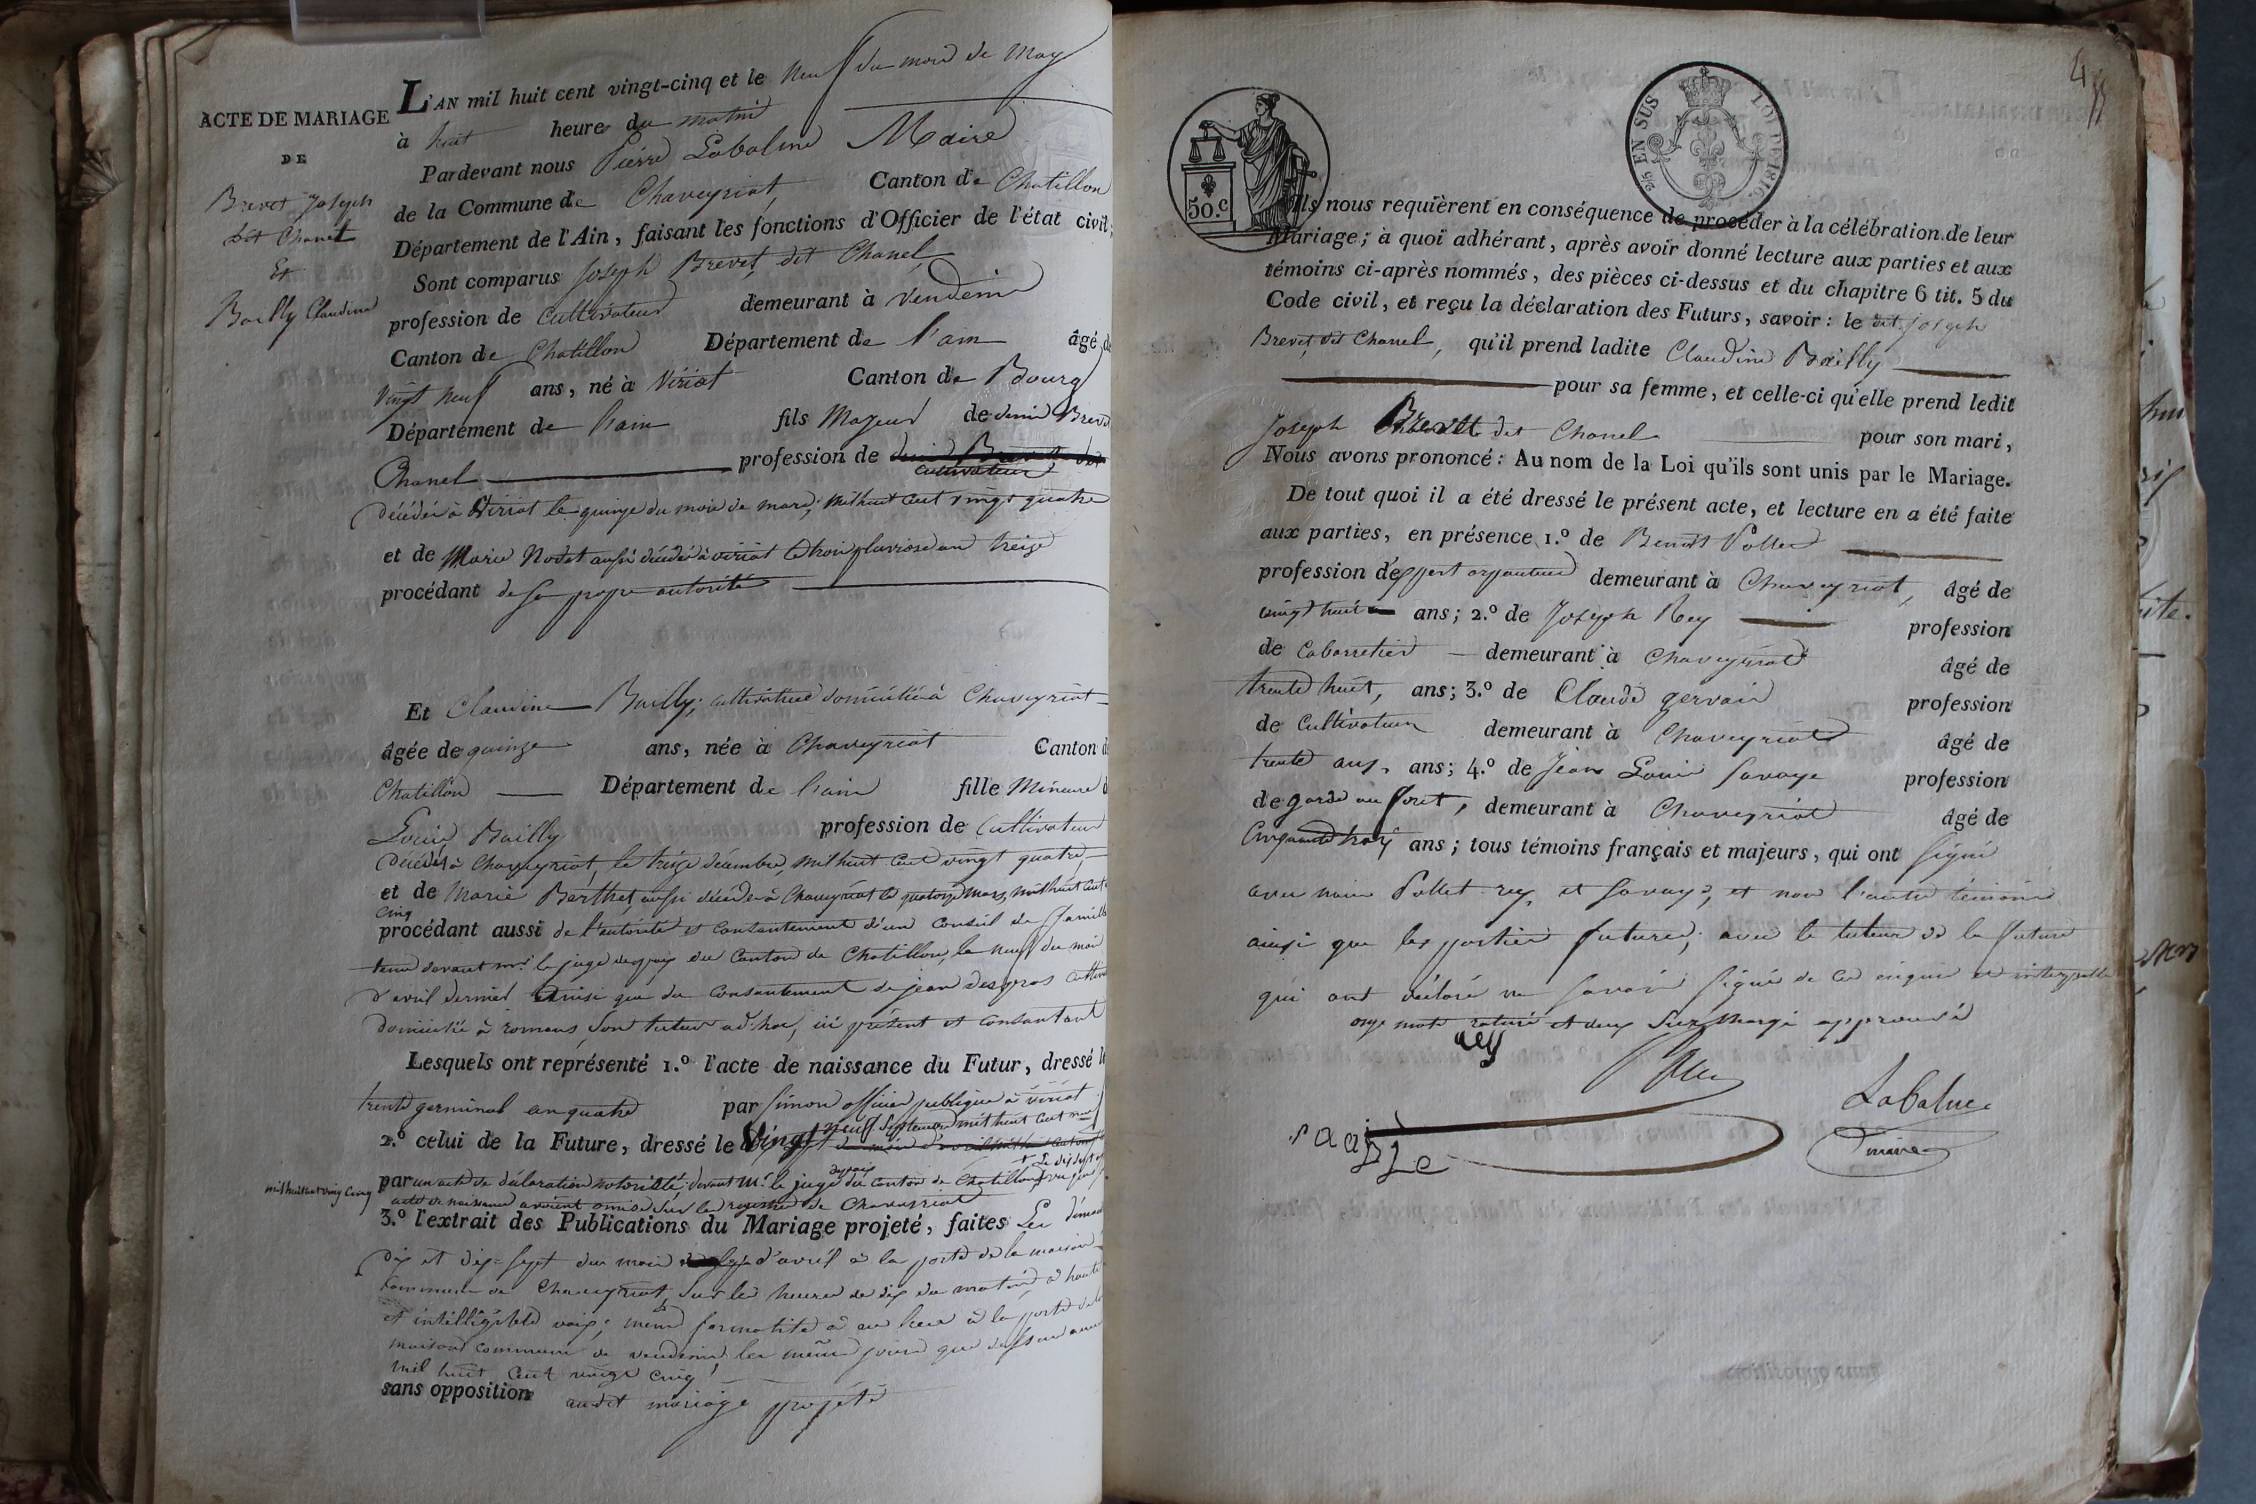 ACTE DE MARIAGE
DE
Brevet Joseph
dit Chanel
Et
Bailly Claudine
L'AN mil huit cent vingt-cinq et le neuf du mois de May
à huit heure du matin
Pardevant nous Pierre Labalme Maire
de la Commune de Chaveyriat, Canton de Chatillon
Département de l'Ain, faisant les fonctions d'Officier de l'état civil;
Sont comparus Joseph Brevet dit Chanel
profession de cultivateur demeurant à Vendeins
Canton de Chatillon Département de l'ain âgé de
vingt neuf ans, né à Viriat Canton de Bourg
Département de l'ain fils Majeur de denis Brevet
Chanel profession de cultivateur
décédé à Viriat le quinze du mois de mars, mil huit cent vingt quatre
et de Marie Nodet aussi décédée à viriat le trois pluviose an treize
procédant de sa propre autorité
Et Claudine Bailly, cultivatrice domiciliée à Chaveyriat
âgée de quinze ans, née à Chaveyriat Canton de
Chatillon Département de l'ain fille Mineure d
Louis Bailly profession de Cultivateur
décédé à Chaveyriat, le treize décembre, mil huit cent vingt quatre,
et de Marie Barthet, aussi décédée à Chaveyriat le quatorze Mars, mil huit cent
cinq
procédant aussi de l'autorité et consentement d'un conseil de famille
tenu devant mr. le juge de paix du Canton de Chatillon, le neuf du mois
d'avril dernier ainsi que du consentement de jean desgras cultiv
domicilié à romans, son tuteur ad-hoc, ici présent et consentant
Lesquels ont représenté 1.º l'acte de naissance du Futur, dressé le
trente germinal an quatre par Simon officier publique à viriat
2.º celui de la Future, dressé le vingt neuf Septembre mil huit cent neuf
par un acte de déclaration notoriété devant Mr. le juge de paix du canton de Chatillon le dix sept
mil huit cent vingt cinq
acte de naissance avoient omise sur le registre de Chaveyriat
3.º l'extrait des Publications du Mariage projeté, faites Les dimanches
dix et dix-sept du mois d'avril à la porte de la maison
commune de Chaveyriat, sur les heures de dix du matin, à haute
et intelligible voix; même formalité a eu lieu à la porte de la
maison commune de vendeins les même jours que dessus
mil huit cent vingt cinq
sans opposition audit mariage projeté
50.c
2/5 EN SUS LOI DE 18
Ils nous requièrent en conséquence de procéder à la célébration de leur
Mariage; à quoi adhérant, après avoir donné lecture aux parties et aux
témoins ci-après nommés, des pièces ci-dessus et du chapitre 6 tit. 5 du
Code civil, et reçu la déclaration des Futurs, savoir: le dit Joseph
Brevet dit Chanel, qu'il prend ladite Claudine Bailly
pour sa femme, et celle-ci qu'elle prend ledit
Joseph Brevet dit Chanel pour son mari,
Nous avons prononcé: Au nom de la Loi qu'ils sont unis par le Mariage.
De tout quoi il a été dressé le présent acte, et lecture en a été faite
aux parties, en présence 1.º de Benoit Pollet
profession d'expert arpenteur demeurant à Chaveyriat, âgé de
vingt huit ans; 2.º de Joseph Rey profession
de Cabarretier demeurant à Chaveyriat âgé de
trente huit, ans; 3.º de Claude gervais profession
de cultivateur demeurant à Chaveyriat âgé de
trente ans; 4.º de Jean Louis Savoye profession
de garde au foret, demeurant à Chaveyriat âgé de
Cinquante trois ans; tous témoins français et majeurs, qui ont signé
avec nous Pollet rey, et Savoye, et non l'autre témoins
ainsi que les parties futures, avec le tuteur de la future
qui ont déclaré ne savoir signé de ce enquis et interpellé
onze mots raturé et deux surchargé approuvé
rey
Pollet
Labalme
maire